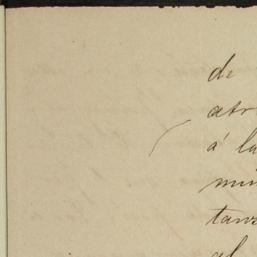 de
atr
á la
min
tanz
al